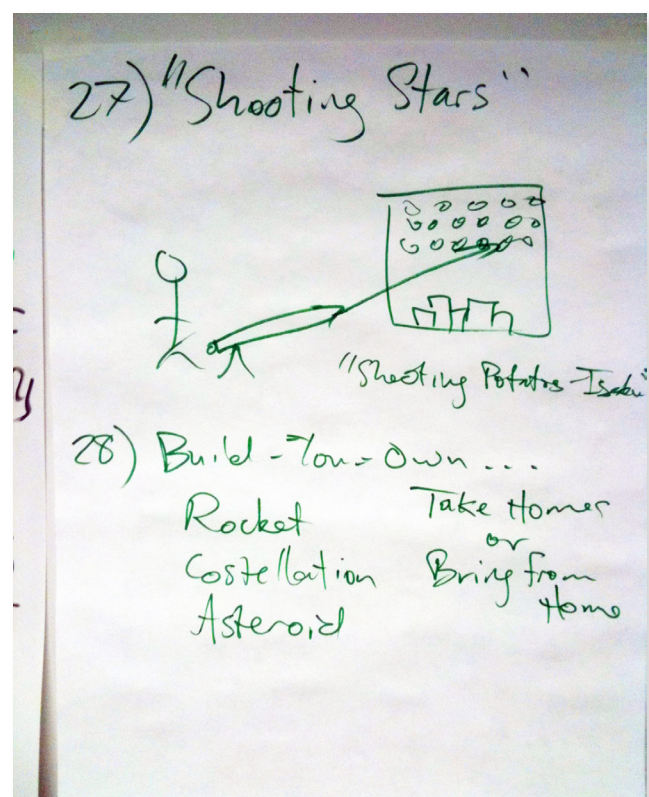 27) "Shooting Stars"
"Shooting Potatos -
28) Build - You - Own ...
Rocket
Costellation
Asteroid
Take Homes
or
Bring from
Home